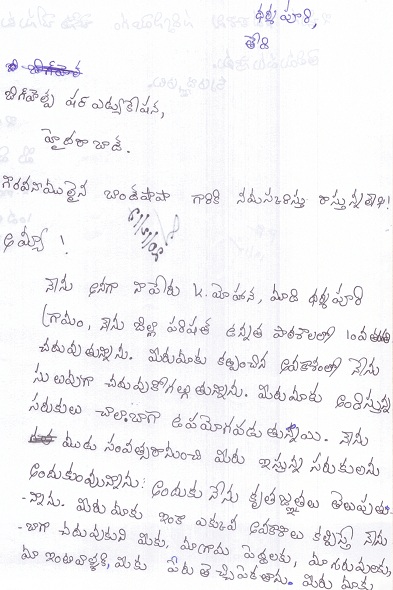 ధర్మపూరి,
తేది
బిగ్‌హెల్ప్ ఫర్ ఎడ్యుకేషన్,
హైదరాబాద్.
గౌరవనీయులైన చాంద్‌పాషా గారికి నమస్కరిస్తు రాస్తున్న లేఖ!
అమ్మో !
నేను అనగా నా పేరు K. మోహన, మాది ధర్మపూరి
గ్రామం, నేను జిల్లా పరిషత ఉన్నత పాఠశాలలో 10వ తరగ
చదువుతున్నాను. మీరుమాకు కల్పించిన అవకాశంతో నేను
సులువుగా చదువుకోగల్గుతున్నాను. మీరుమాకు అందిస్తున్న
సరుకులు చాలాబాగా ఉపయోగపడుతున్నాయి. నేను
మూడు సంవత్సరాలనుంచి మీరు ఇస్తున్న సరుకులను
అందుకుంటున్నాను. అందుకు నేను కృతజ్ఞతలు తెలుపుతు-
-న్నాను. మీరు మాకు ఇంకా ఎక్కువ అవకాశాలు కల్పిస్తే నేను
-బాగా చదువుకుని మీకు, మాగ్రామ పెద్దలకు, మా గురువులకు,
మా ఇంటివాళ్లకి, మీకు పేరు తెచ్చిపెడతాను. మీరు మాకు